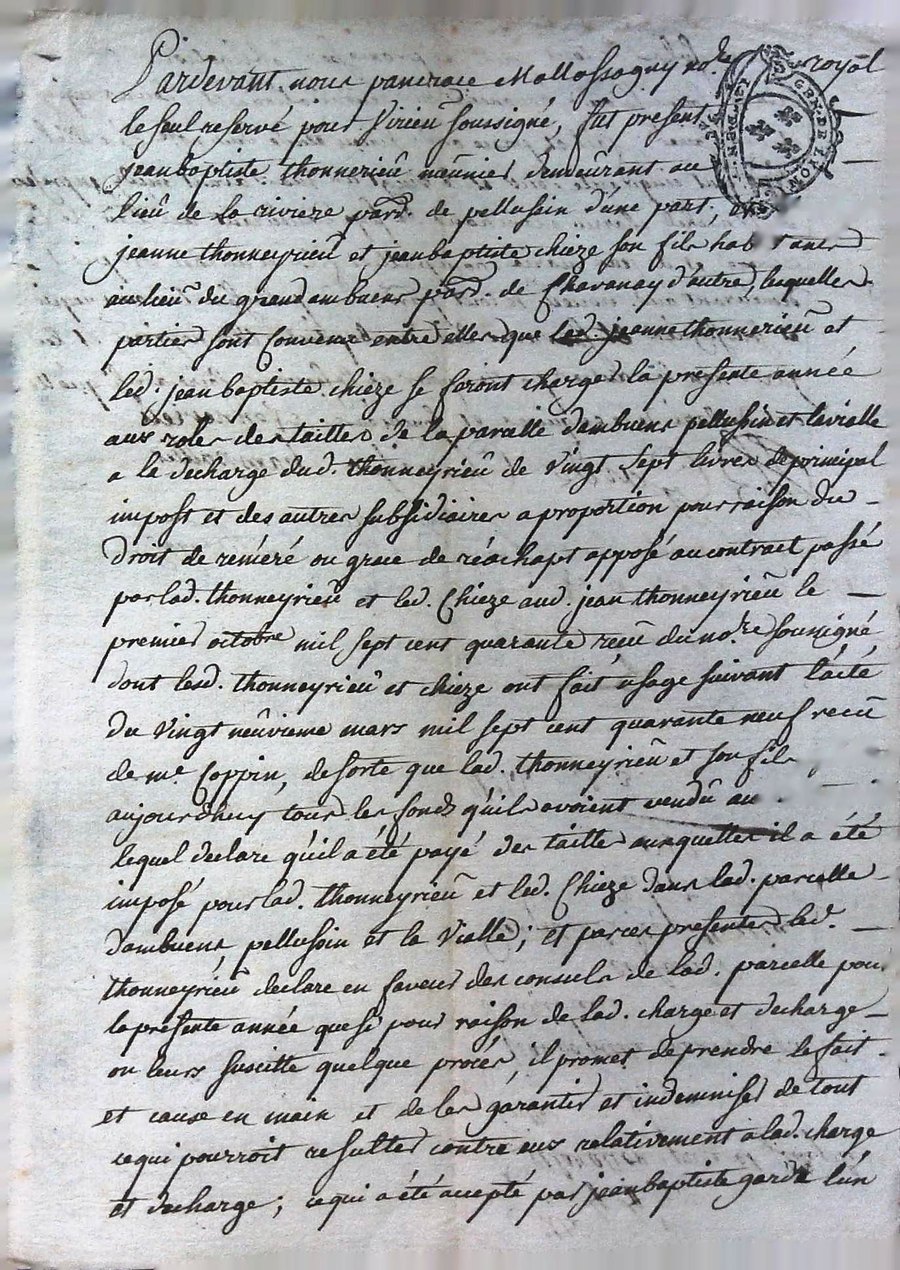 Pardevant nous pancrace Mallassagny no.re royal
le seul reservé pour Virieu soussigné, fut present
jeanbaptiste thonnerieû meûnier demeûrant au
lieû de la riviere pard. de pellussin d'une part, et
jeanne thonneyrieû et jeanbaptiste chieze son fils hab tans
au lieû du grand ambuens pard. de Chavanay d'autre, lesquelles
parties sont Convenu entre elles que lad. jeanne thonnerieû et
led. jean baptiste chieze se feront charger la presente année
aux roles des tailles de la parcelle dambuens pellussin et laviale
a la decharge dud. thonneyrieû de Vingt sept livres de principal
impost et des autres subsidiaires a proportion pour raison du
droit de reméré ou grace de réachapt apposé au contract passé
par lad. thonneyrieû et led. Chieze aud. jean thonneyrieû le
premier octobre mil sept cent quarante recû du no.re soussigné
dont lesd. thonneyrieû et chieze ont fait usage suivant l'acte
du Vingt neûvieme mars mil sept cent quarante neuf recû
de me. Coppin, de sorte que lad. thonneyrieû et son fils
aujourdhuy tous les fonds quils avoient vendû au
lequel declare qu'il a été payé des taille ausquelles il a été
imposé pour lad. thonneyrieû et led. Chieze dans lad. parcelle
dambuens, pellussin et la Vialle; et par ces presentes led.
thonneyrieû declare en faveur des consuls de lad. parcelle pour
la presente année que si pour raison de lad. charge et decharge
on leurs suscitte quelque procés, il promet de prendre le fait
et cause en main et de les garantir et indemniser de tout
ce qui pourroit resulter contre eux relativement a lad. charge
et decharge; ce qui a été accepté par jeanbaptiste garde l'un